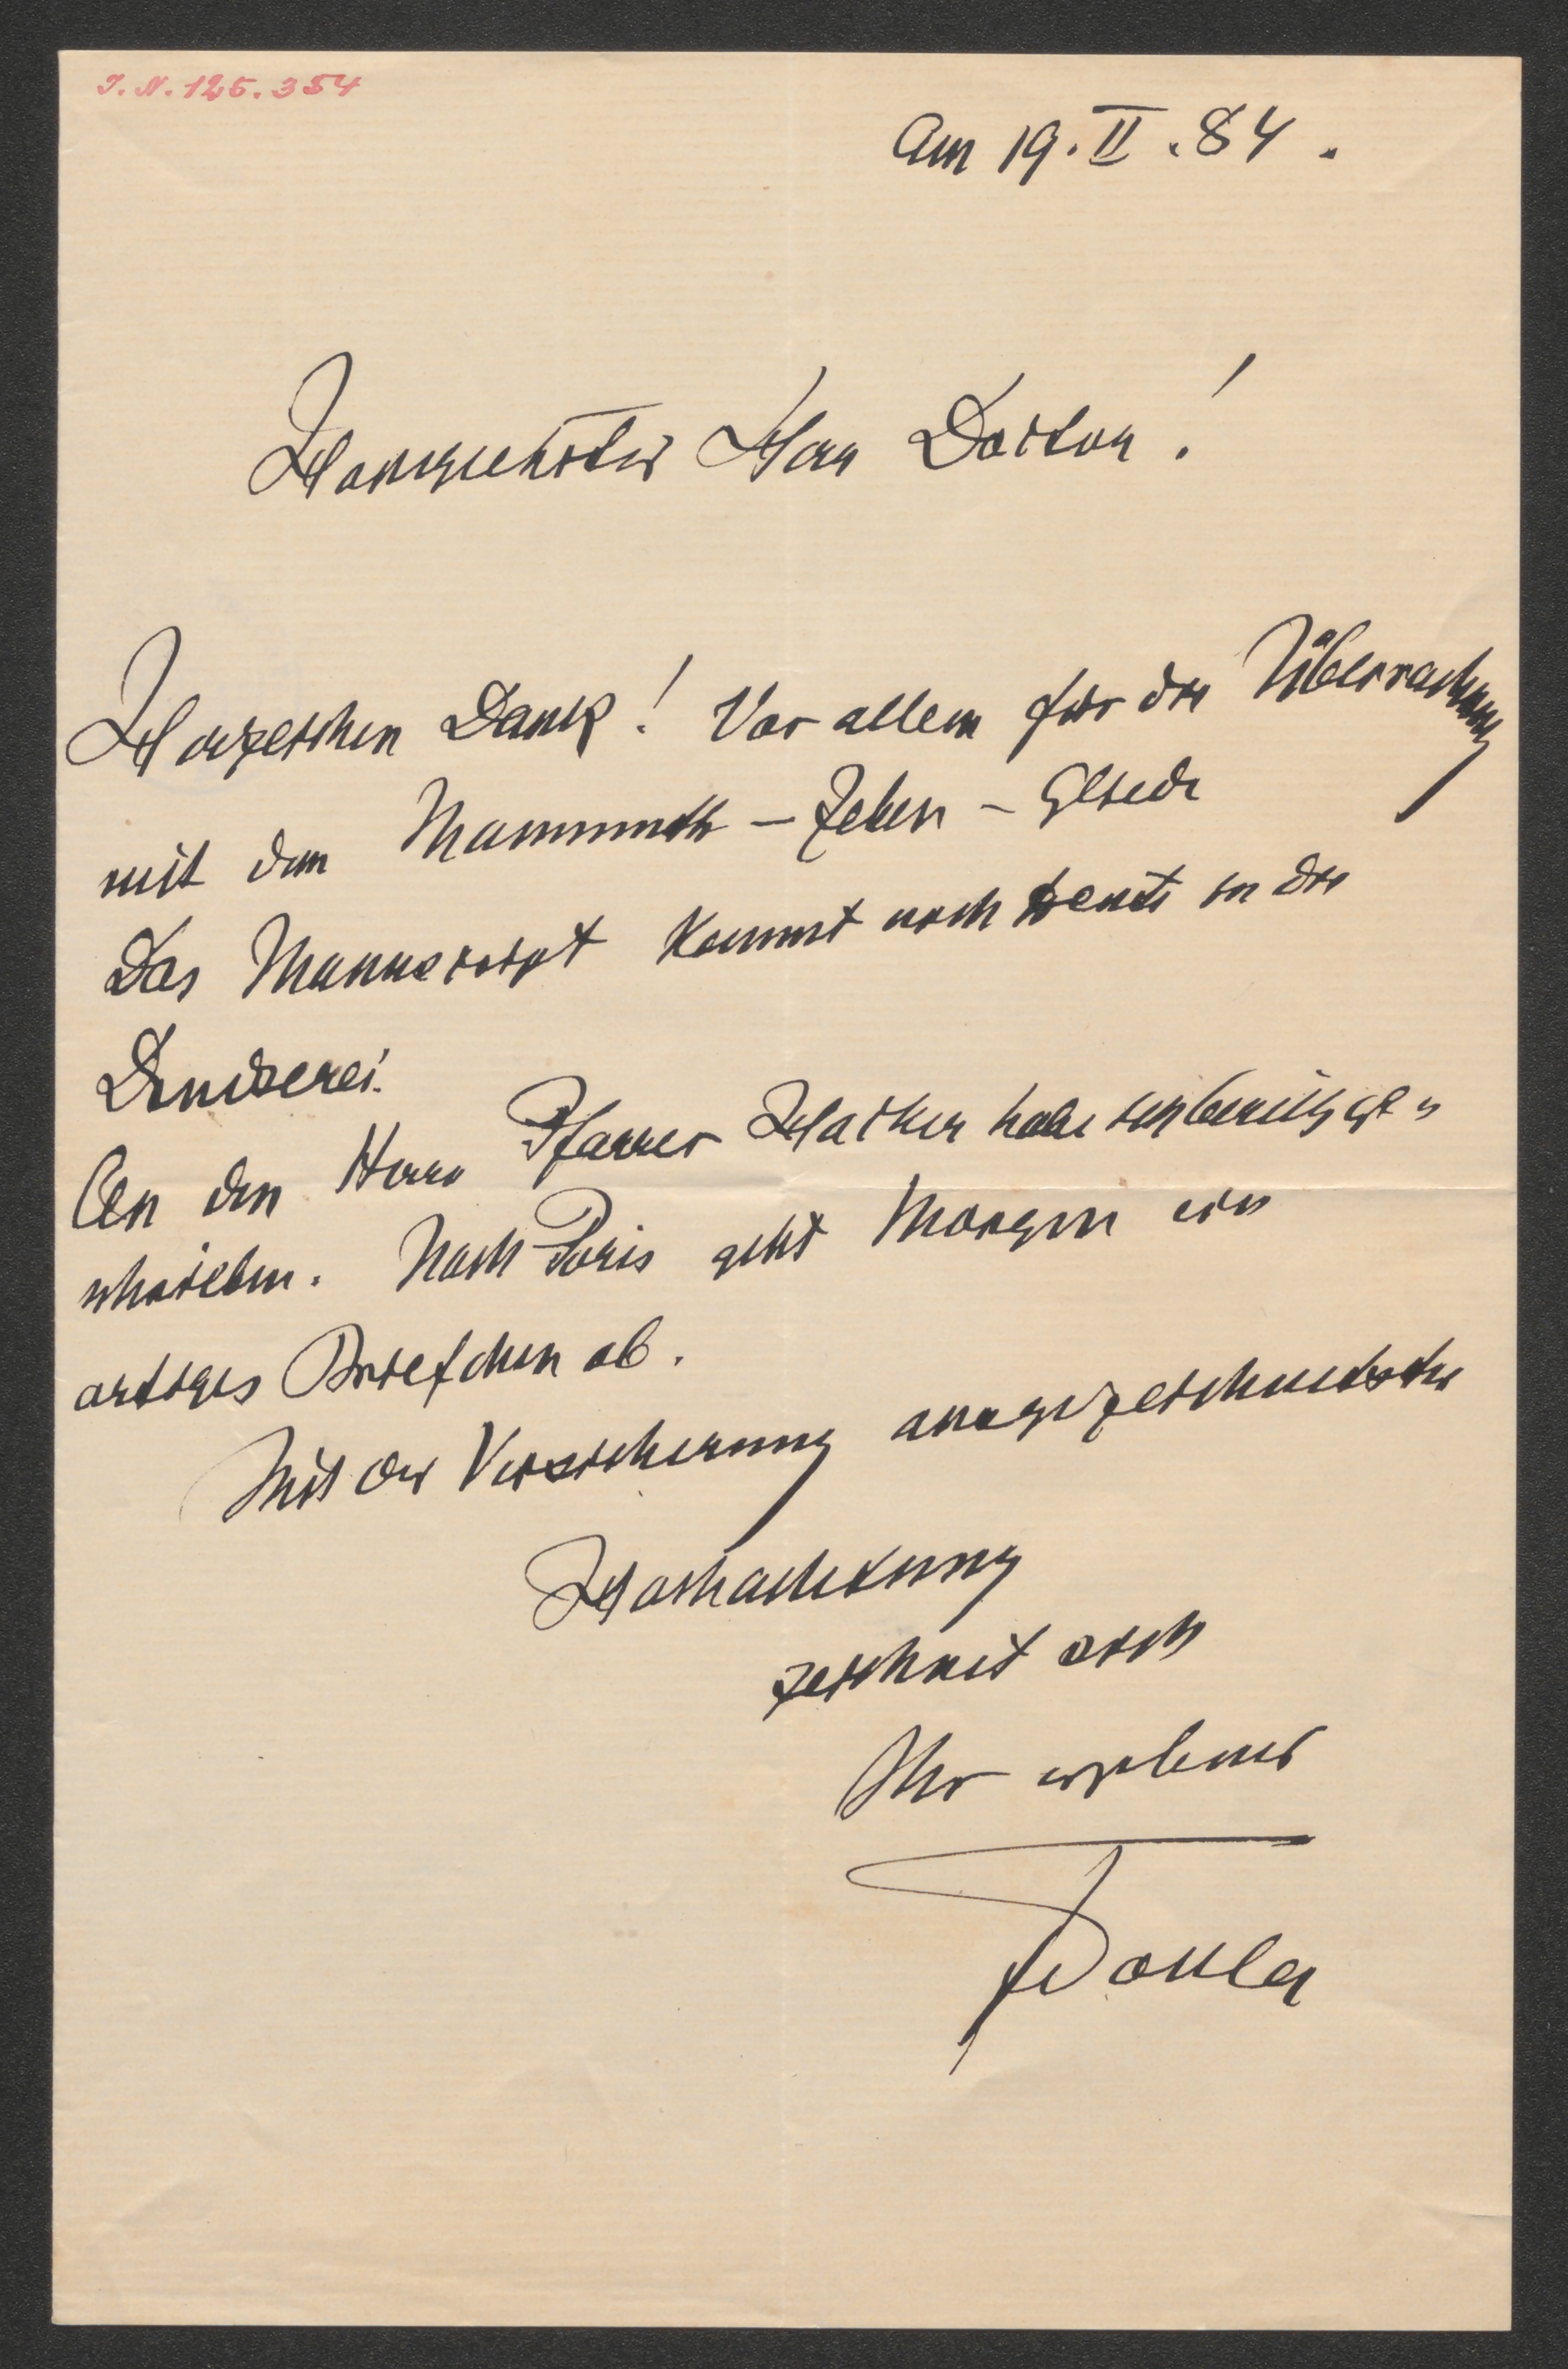 J. N. 125.354
Am 19. II. 84.
Hochgeehrter Herr Doctor!
Herzlichen Dank! Vor allem für die Überraschung
mit dem Mammuth-Zehen-Gliede
Das Manuscript kommt noch heute in die
Druckerei.
An den Herrn Pfarrer Hacker habe ich bereits ge-
schrieben. Nach Paris geht Morgen ein
artiges Briefchen ab.
Mit der Versicherung ausgezeichnetster
Hochachtung
zeichnet sich
Ihr ergebener
Toula